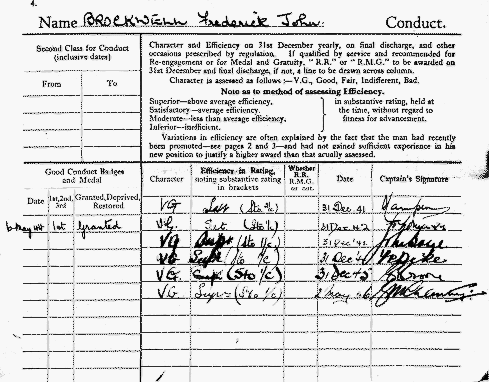 4.
Name BROCKWELL Frederick John. Conduct.
Second Class for Conduct
(inclusive dates)
From To
Character and Efficiency on 31st December yearly, on final discharge, and other
occasions prescribed by regulation. If qualified by service and recommended for
Re-engagement or for Medal and Gratuity, "R.R." or "R.M.G." to be awarded on
31st December and final discharge, if not, a line to be drawn across column.
Character is assessed as follows :—V.G., Good, Fair, Indifferent, Bad.
Note as to method of assessing Efficiency.
Superior—above average efficiency.
Satisfactory—average efficiency.
Moderate—less than average efficiency.
Inferior—inefficient.
in substantive rating, held at
the time, without regard to
fitness for advancement.
Variations in efficiency are often explained by the fact that the man had recently
been promoted—see pages 2 and 3—and had not gained sufficient experience in his
new position to justify a higher award than that actually assessed.
Good Conduct Badges
and Medal
Date 1st, 2nd, 3rd Granted, Deprived, Restored
Character
Efficiency in Rating,
noting substantive rating
in brackets
Whether
R.R.
R.M.G.
or not.
Date
Captain's Signature
VG Sat 31 Dec 41
6 May 44 1st granted VG Sat 31 Dec 42
VG (Sto 1/c) 31 Dec
VG (Sto 1/c) 31 Dec
VG Sup (Sto 1/c) 31 Dec 45
VG Super (Sto 1/c) 2 May 46